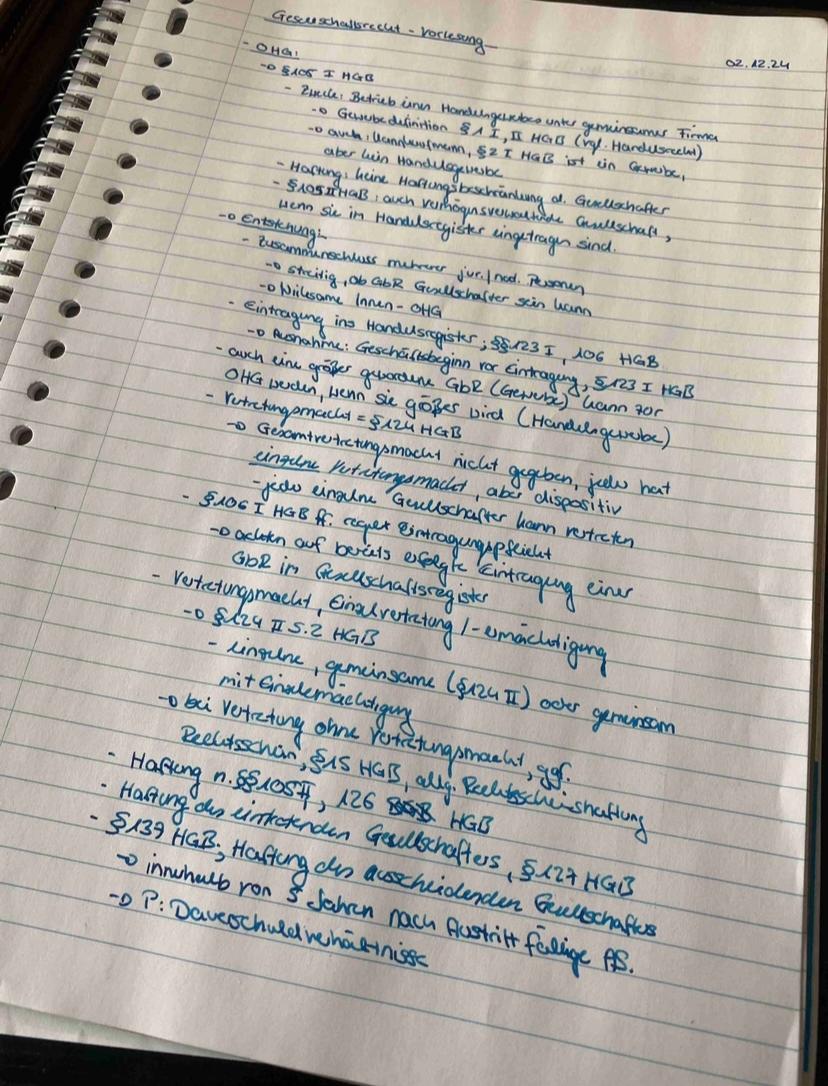 Gesellschaftsrecht - Vorlesung
02.12.24
- OHG:
→ §105 I HGB
- Zweck: Betrieb eines Handelsgewerbes unter gemeinsamer Firma
→ Gewerbedefinition §1 I, II HGB (vgl. Handelsrecht)
→ auch: Kannkaufmann, §2 I HGB ist ein Gewerbe,
aber kein Handelsgewerbe
- Haftung: keine Haftungsbeschränkung d. Gesellschafter
- §105 II HGB: auch vermögensverwaltende Gesellschaft,
wenn sie im Handelsregister eingetragen sind.
→ Entstehung:
- Zusammenschluss mehrerer jur./nat. Personen
→ streitig, ob GbR Gesellschafter sein kann
→ Innen-OHG
- Eintragung ins Handelsregister; §§123 I, 106 HGB
→ Ausnahme: Geschäftsbeginn vor Eintragung, §123 I HGB
- auch eine größer gewordene GbR (Gewerbe) kann zur
OHG werden, wenn sie größer wird (Handelsgewerbe)
- Vertretungsmacht = §124 HGB
→ Gesamtvertretungsmacht nicht gegeben, jeder hat
einzelne Vertretungsmacht, aber dispositiv
- jede einzelne Gesellschafter kann vertreten
- §106 I HGB ff. regelt Eintragungspflicht
→ achten auf bereits erfolgte Eintragung einer
GbR im Gesellschaftsregister
- Vertretungsmacht, Einzelvertretung/-ermächtigung
→ §124 II S.2 HGB
- einzelne, gemeinsame (§124 II) oder gemeinsam
mit Einzelermächtigung
→ bei Vertretung ohne Vertretungsmacht, ggf.
Rechtsschein, §15 HGB, allg. Rechtsscheinshaftung
- Haftung n. §§105 II, 126 HGB
- Haftung des eintretenden Gesellschafters, §127 HGB
- §139 HGB: Haftung des ausscheidenden Gesellschafters
→ innerhalb von 5 Jahren nach Austritt fällige AS.
→ P: Dauerschuldverhältnisse